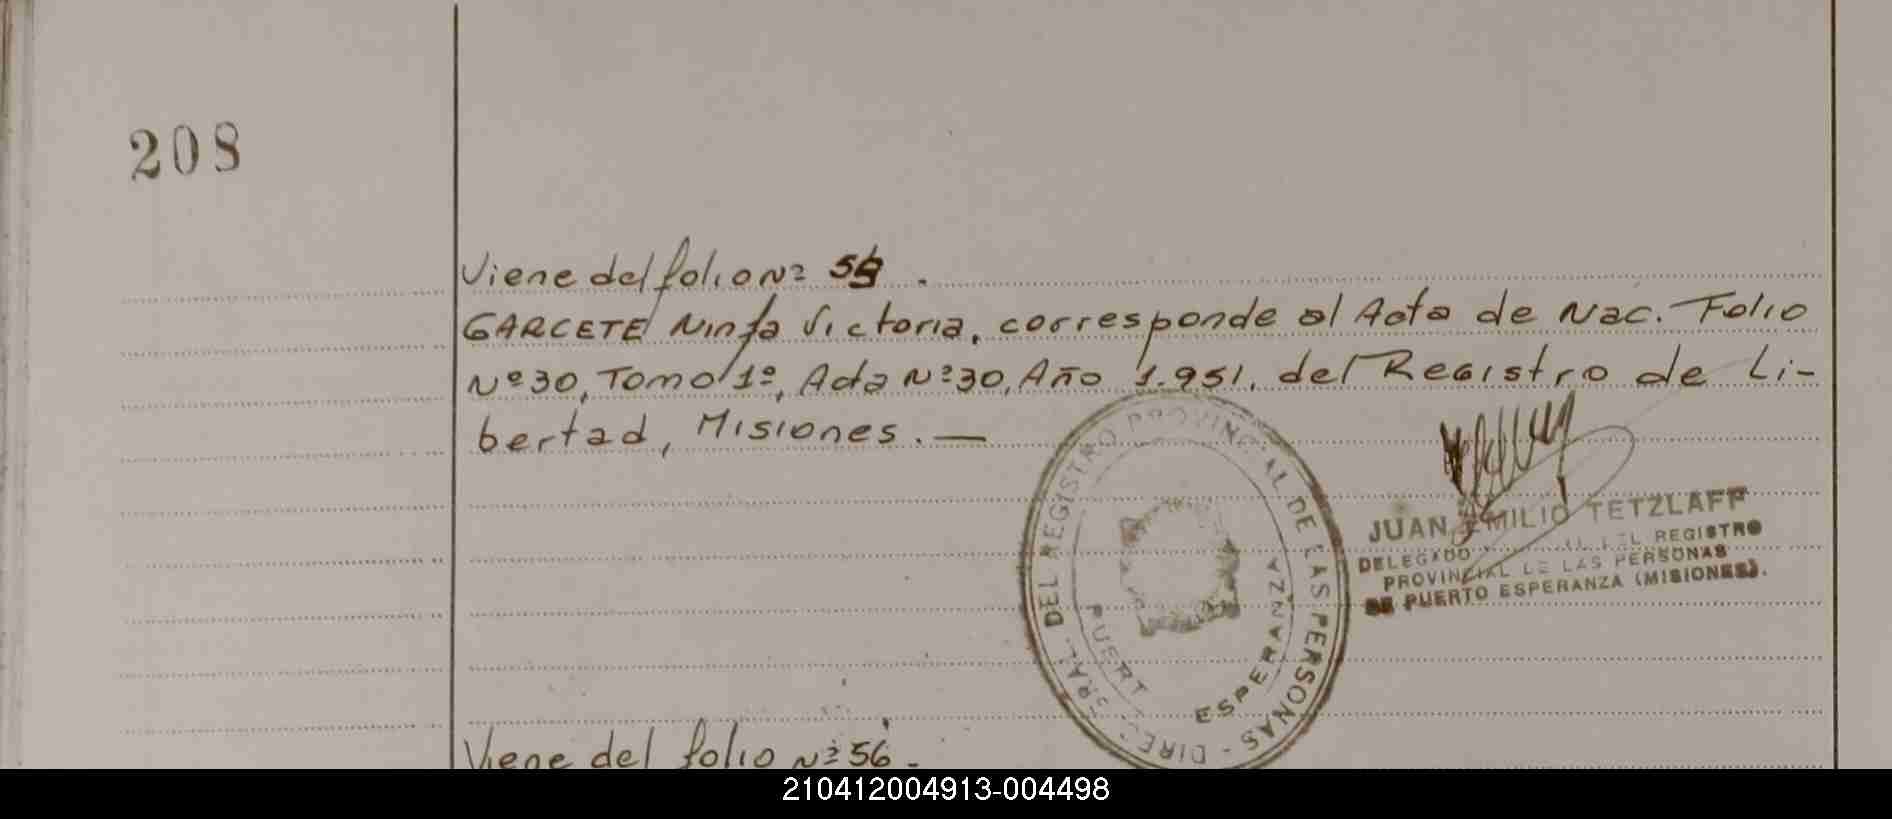 208
Viene del folio Nº .
GARCETE Ninfa Victoria, corresponde al Acta de Nac. Folio
Nº 30, Tomo 1º, Acta Nº 30, Año 1.951, del Registro de Li-
bertad, Misiones. —
DEL REGISTRO PROVINCIAL DE LAS PERSONAS - DIREC. GRAL.
PUERT ESPERANZA
JUAN EMILIO TETZLAFF
DELEGADO DEL REGISTRO
PROVINCIAL DE LAS PERSONAS
DE PUERTO ESPERANZA (MISIONES).
Viene del folio Nº 56.
210412004913-004498